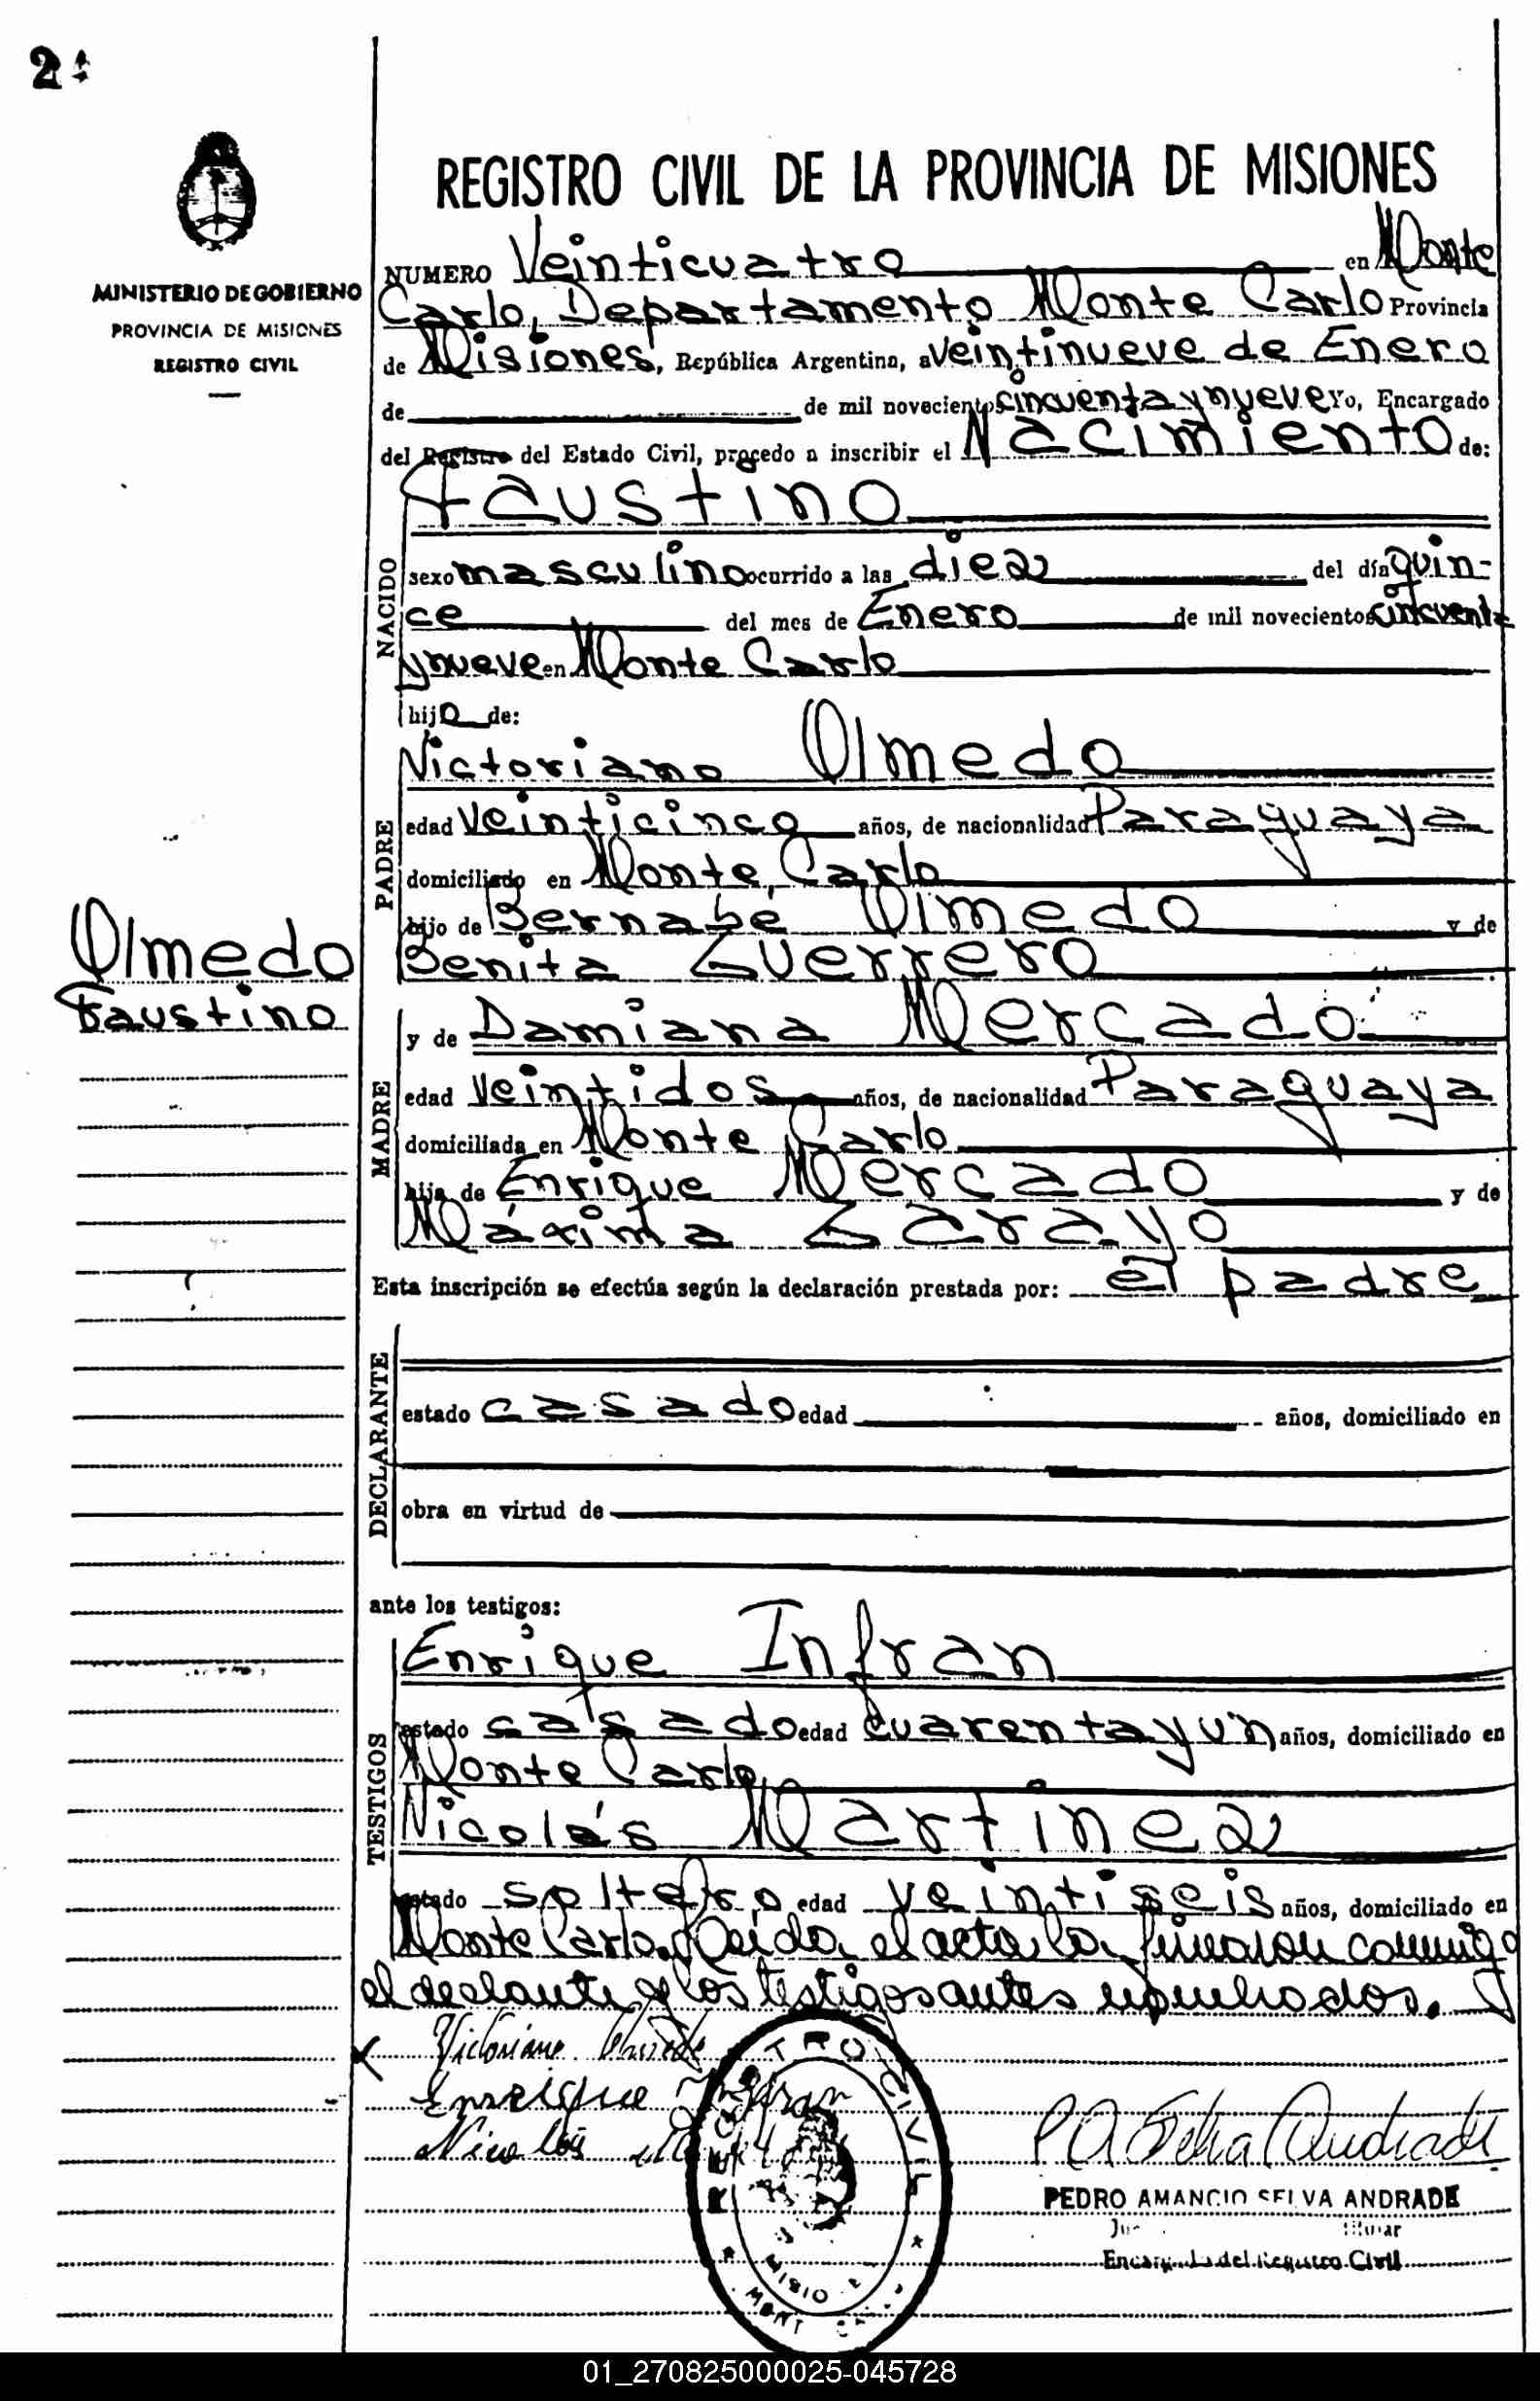 2
MINISTERIO DE GOBIERNO
PROVINCIA DE MISIONES
REGISTRO CIVIL
REGISTRO CIVIL DE LA PROVINCIA DE MISIONES
NUMERO Veinticuatro en Monte
Carlo, Departamento Monte Carlo Provincia
de Misiones, República Argentina, a veintinueve de Enero
de de mil novecientos cincuenta y nueve Yo, Encargado
del Registro del Estado Civil, procedo a inscribir el Nacimiento de:
Faustino
NACIDO
sexo masculino ocurrido a las diez del día quin-
ce del mes de Enero de mil novecientos cincuenta
y nueve en Monte Carlo
hijo de:
Victoriano Olmedo
PADRE
edad veinticinco años, de nacionalidad Paraguaya
domiciliado en Monte Carlo
hijo de Bernabé Olmedo y de
Benita Guerrero
Olmedo
Faustino
y de Damiana Mercado
MADRE
edad veintidos años, de nacionalidad Paraguaya
domiciliada en Monte Carlo
hija de Enrique Mercado y de
Máxima Zarayo
Esta inscripción se efectúa según la declaración prestada por: el padre
DECLARANTE
estado casado edad años, domiciliado en
obra en virtud de
ante los testigos:
Enrique Infran
TESTIGOS
estado casado edad cuarenta y un años, domiciliado en
Monte Carlo
Nicolás Martinez
estado soltero edad veintiseis años, domiciliado en
Monte Carlo. Leida el acta la firmaron conmigo
el declante y los testigos antes
Victoriano
Enrique Infran
Nicolás
REGISTRO CIVIL
P A Selva Andrade
PEDRO AMANCIO SELVA ANDRADE
Encargado del Registro Civil
01_270825000025-045728